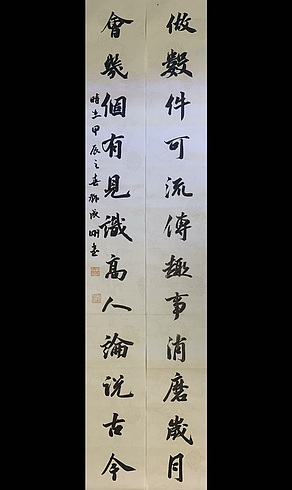 做數件可流傳趣事消磨歲月
會幾個有見識高人論說古今
時在甲辰之春